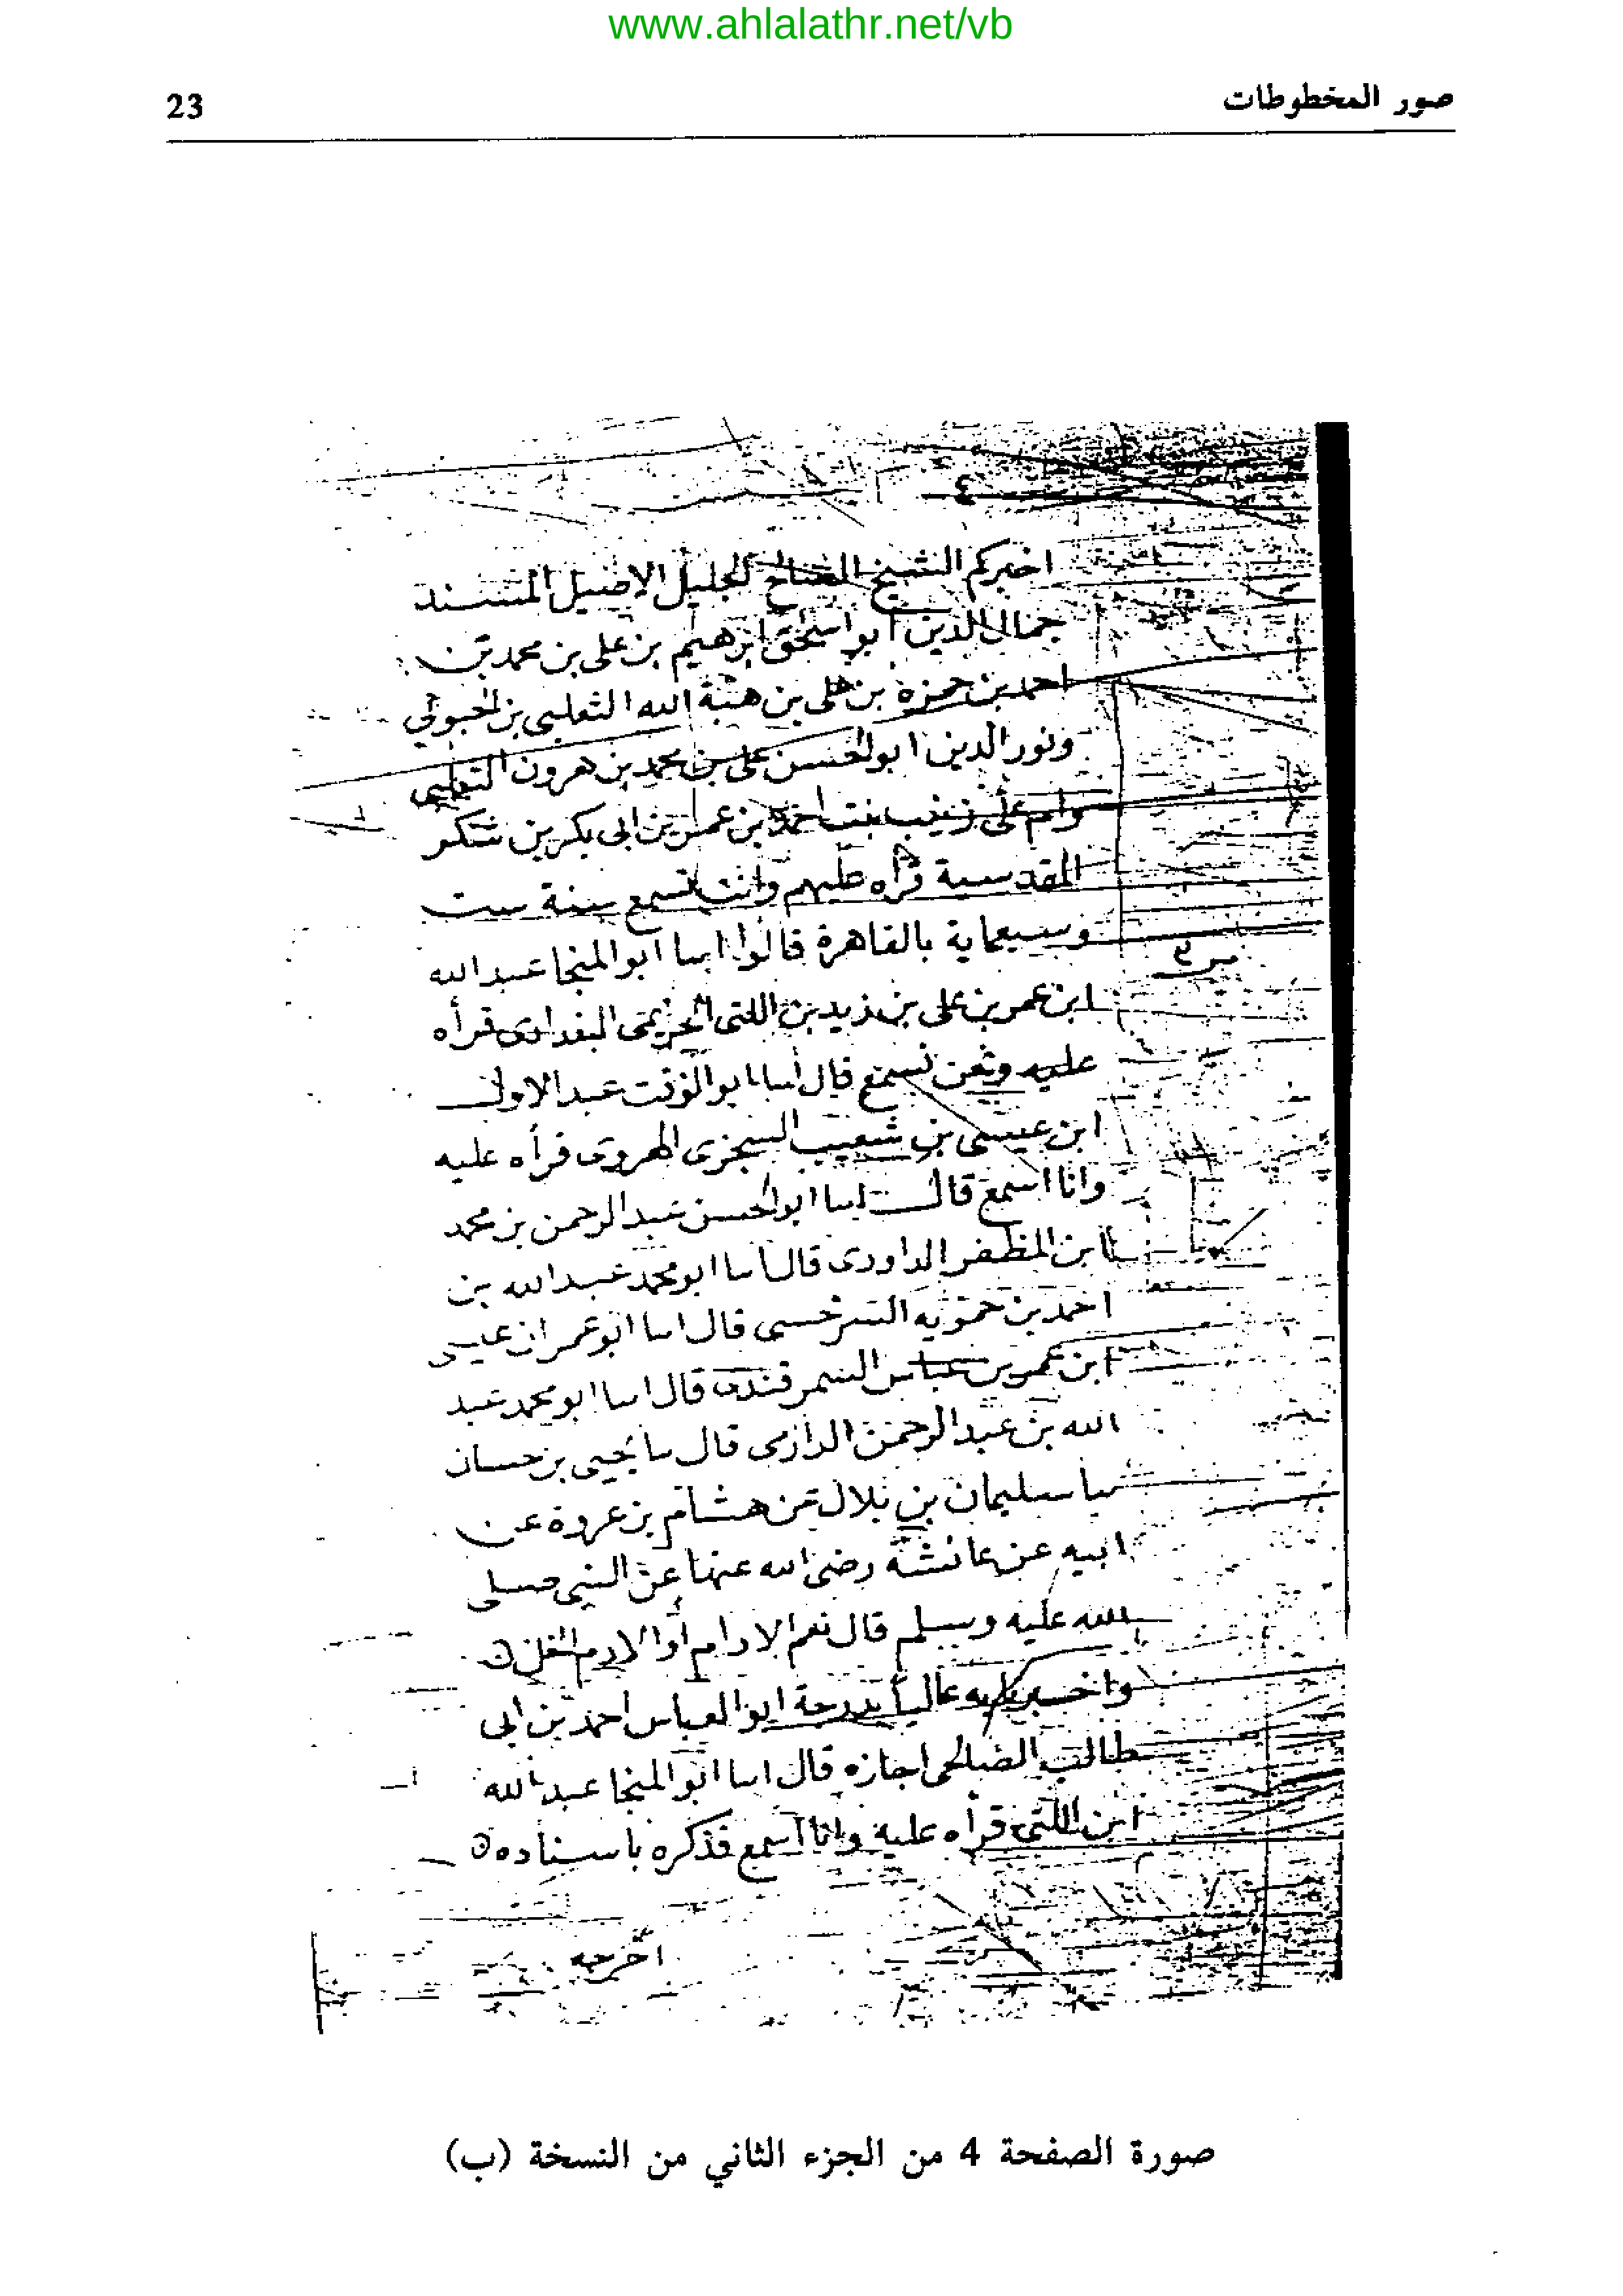 www.ahlalathr.net/vb
صور المخطوطات
23
٤
اخبركم الشيخ الصالح الجليل الاصيل المسند
جمال الدين ابو اسحق ابرهيم بن علي بن محمد بن
احمد بن حمزة بن علي بن هبة الله الثعلبي بن الحبوبي
ونور الدين ابو الحسن علي بن محمد بن هرون الثعلبي
وام علي زينب بنت احمد بن عمر بن ابي بكر بن شكر
المقدسية قرأه عليهم وانت تسمع سنة ست
وسبعماية بالقاهرة قالوا اسا ابو المنجا عبد الله
ابن عمر بن علي بن زيد بن اللتي الحريمي البغدادي قرأه
عليه ونحن نسمع قال اسا ابو الوقت عبد الاول
ابن عيسى بن شعيب السجزي الهروي قرأه عليه
وانا اسمع قال اسا ابو الحسن عبد الرحمن بن محمد
ابن المظفر الداودي قال اسا ابو محمد عبد الله بن
احمد بن حمويه السرخسي قال اسا ابو عمران عيسى
ابن عمر بن عباس السمرقندي قال اسا ابو محمد عبد
الله بن عبد الرحمن الدارمي قال سا يحيى بن حسان
سا سليمان بن بلال عن هشام بن عروة عن
ابيه عن عائشة رضي الله عنها عن النبي صلى
الله عليه وسلم قال نعم الادام أو الادم الخل
واخبرنا به عاليا بدرجة ابو العباس احمد بن ابي
طالب الصالحي اجازه قال اسا ابو المنجا عبد الله
ابن اللتي قرأه عليه وانا اسمع فذكره باسناده
اخرجه
صورة الصفحة 4 من الجزء الثاني من النسخة (ب)